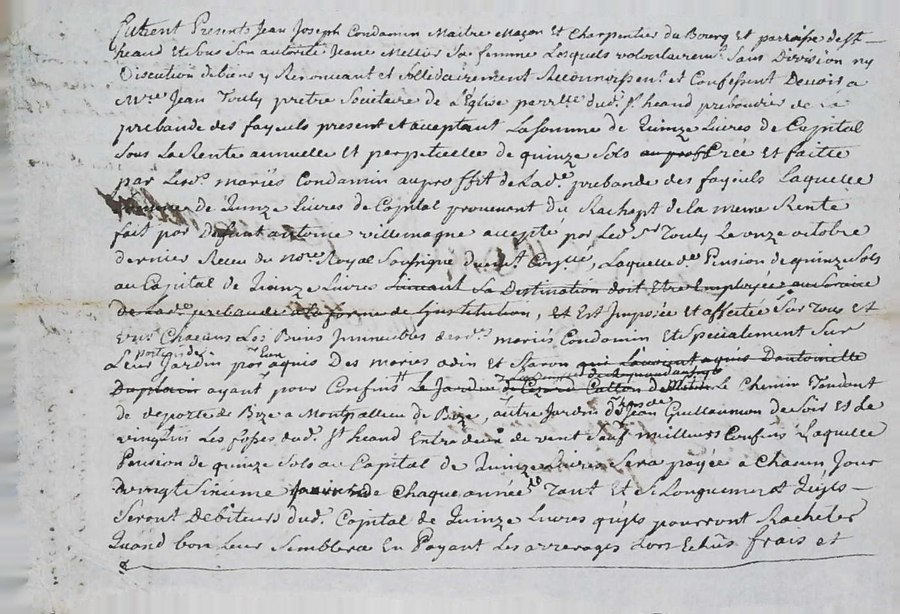 furent Presents Jean Joseph Condamin Maitre Maçon et Charpentier du Bourg et parroisse de st
heand et sous son autorité Jeane Mellier sa femme Lesquels volontairemt. sans Division ny
Discution de biens y Renonceant et sollidairement Reconnoissent et Confessent Devoir a
Mre. Jean Touly pretre Societaire de L'Eglise parrlle dud. st heand prebandier de la
prebande des fayeuls present et acceptant La somme de Quinze Livres de Capital
sous La Rente annuelle et perpetuelle de quinze sols au proff Crée et faitte
par Lesds. mariés Condamin au proffit de Lade. prebande des fayeuls Laquelle
somme de Quinze Livres de Capital provenant du Rachapt de la meme Rente
fait por Defunt antoine villemagne accepté por Led. Sr Touly Le onze octobre
dernier Receu du nore. Royal soussigné , Laquelle de. Pension de quinze sols
au Capital de Quinze Livres suivant sa Destination doit Etre Employée
de Lade. prebande a la forme de L'institution, et Est Imposée et affectée sur Tous et
uns Chacuns Les Biens Immeubles desds. mariés Condamin et specialement sur
Leur portion de Jardin por Eux aquis Des mariés odin et qui L'avoient aquis D'antoinette
ayant pour Confins Le Jardin de Le Chemin Tendant
de de Bize a Montpallieu de Bize, autre Jardin de Jean Guillaumon de soir et de
Les fossés dud. st heand Entre deux de vent sauf meilleurs Confins Laquelle
Pension de quinze sols au Capital de Quinze Livres sera payée a Chacun Jour
vingt sixieme de Chaque année Tant et si Longuement Quils
seront Debiteurs dud. Capital de Quinze Livres quils pourront Racheter
Quand bon Leur semblera En Payant Les arrerages Lors Echûs frais et